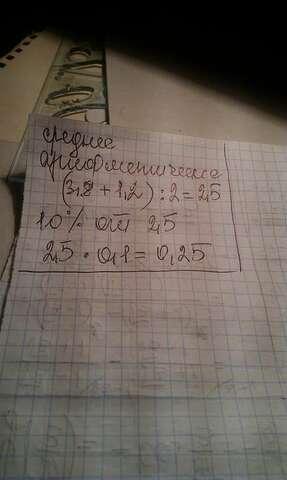 среднее
арифметическое
(3,8 + 1,2) : 2 = 2,5
10% от 2,5
2,5 · 0,1 = 0,25